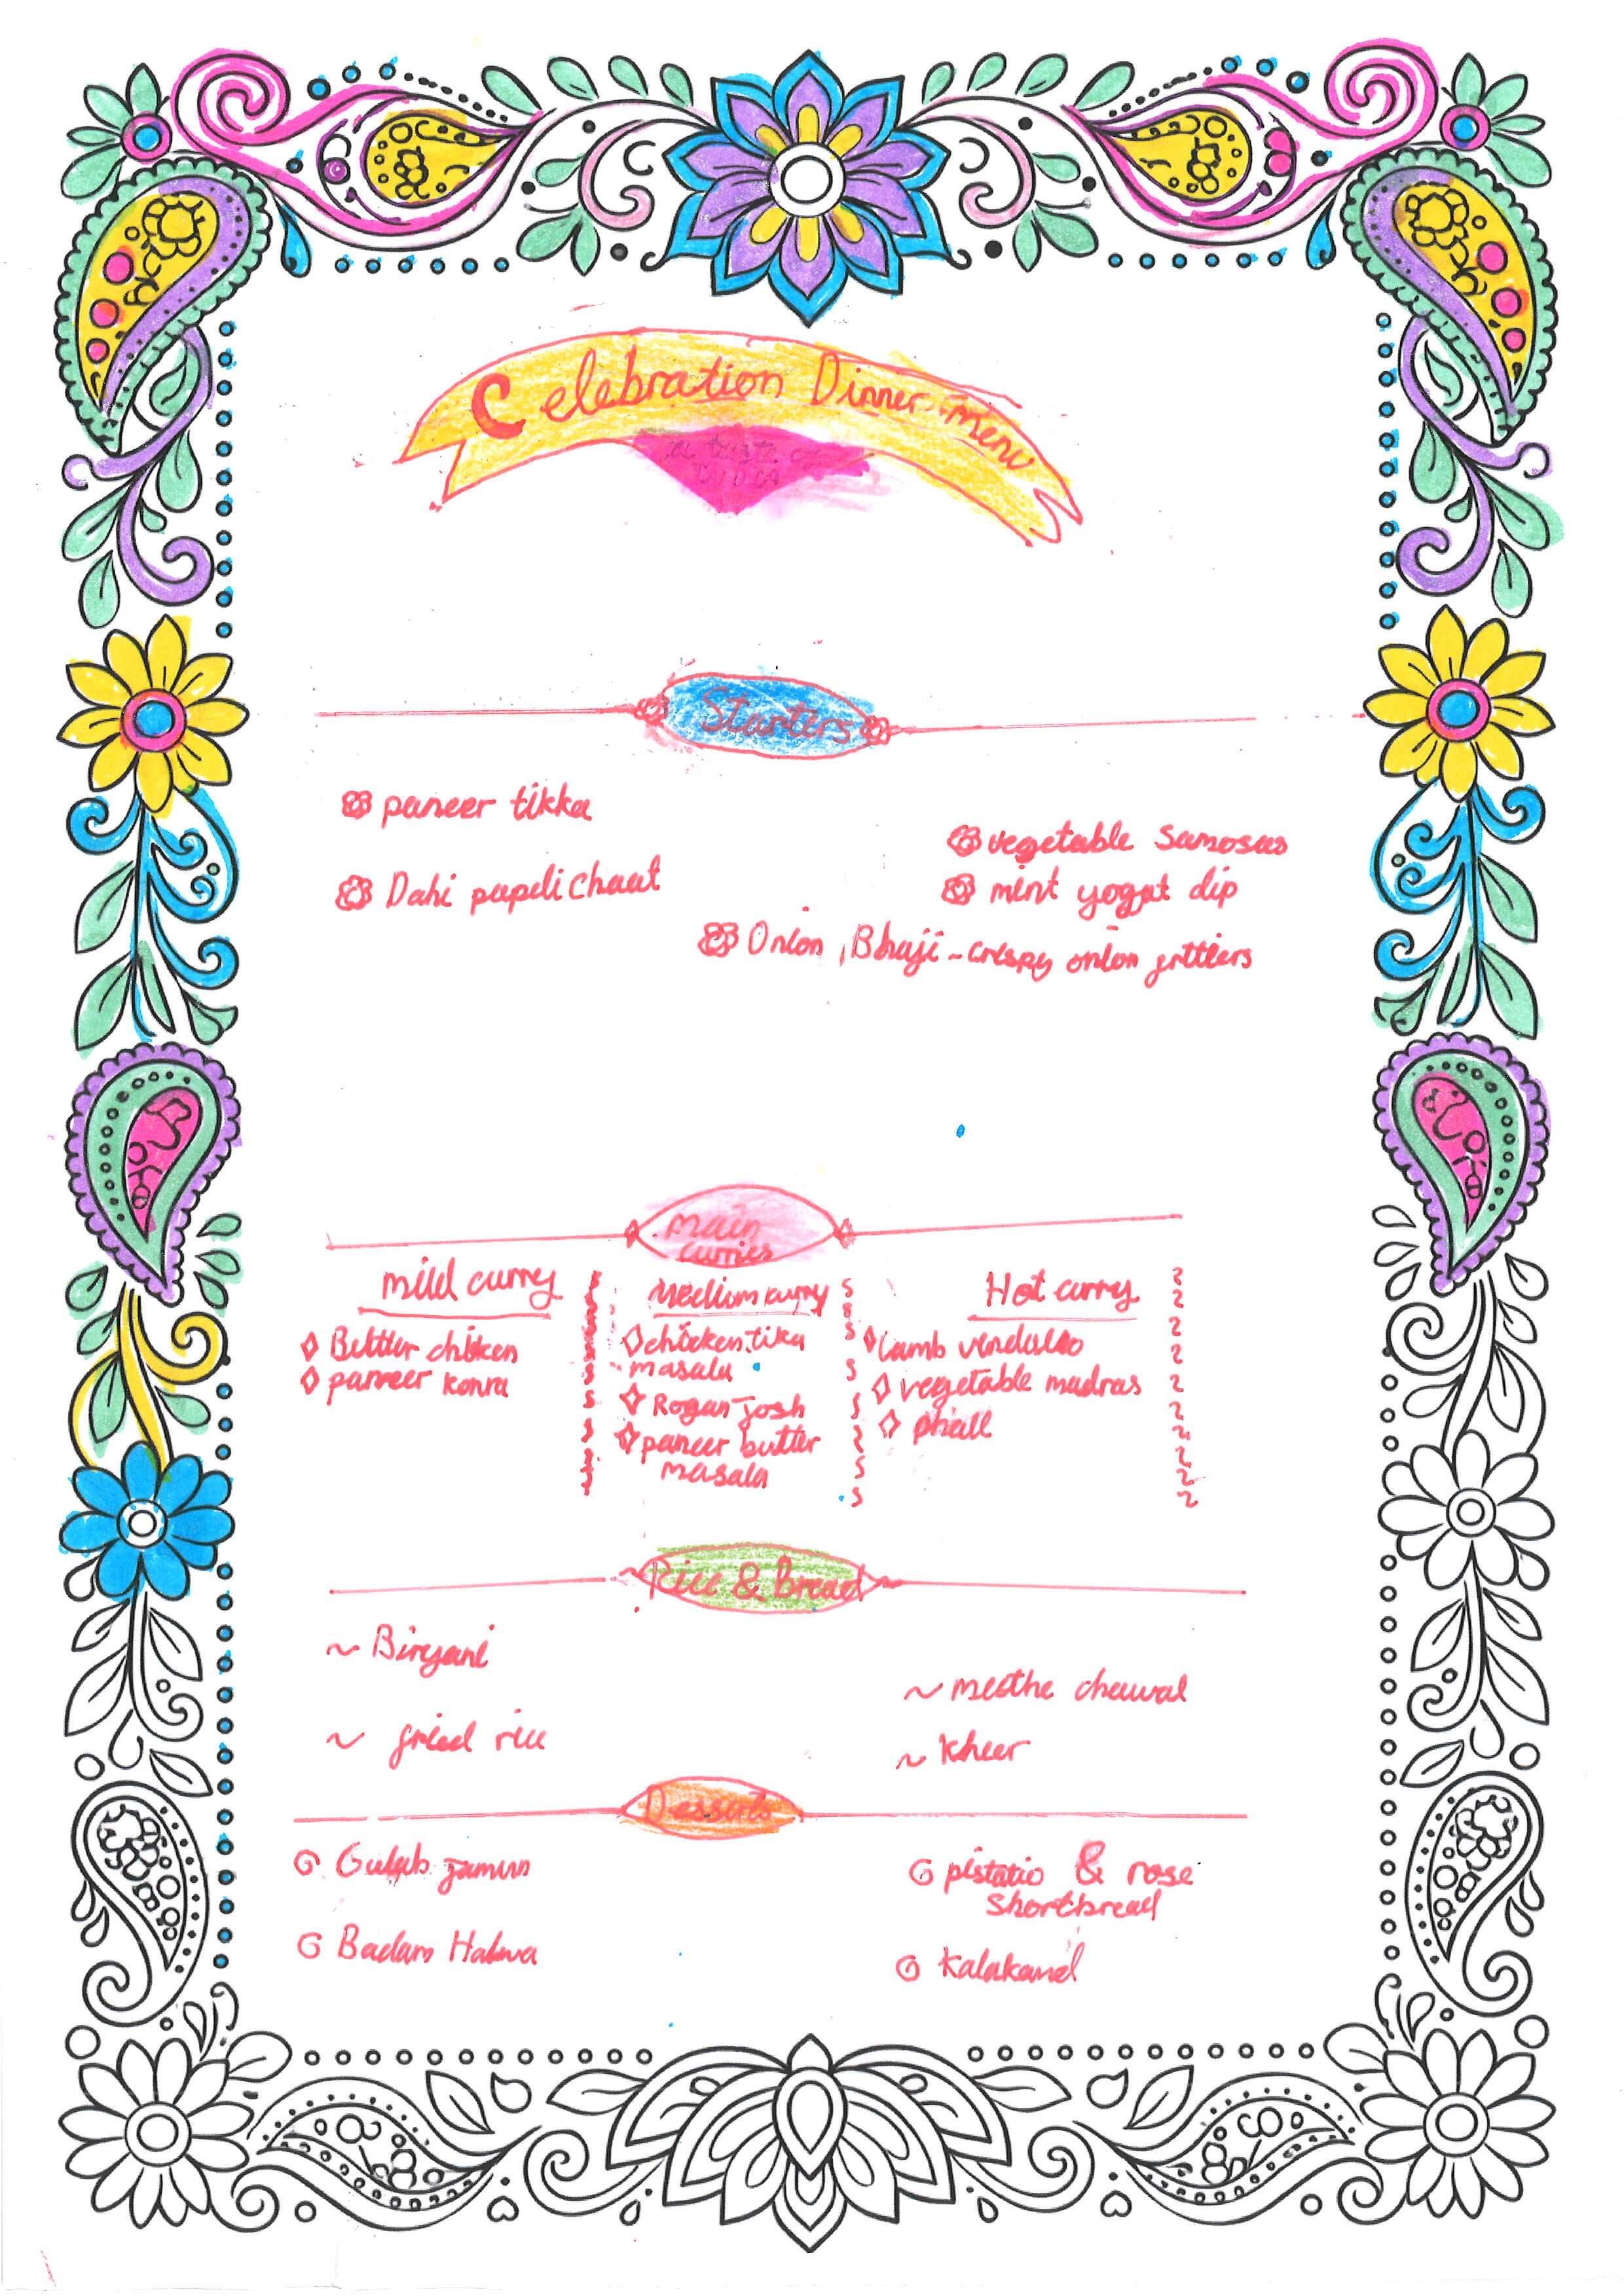 Celebration Dinner menu
a taste of
INDIA
Starters
paneer tikka
vegetable samosas
Dahi papdi Chaat
mint yogat dip
Onion Bhaji - crispy onion frittiers
Main
curries
mild curry
Butter chicken
paneer korra
Medium curry
chicken tika
masala
Rogan Josh
paneer butter
masala
Hot curry
lamb vindaloo
vegetable madras
phall
Rice & Bread
~ Biryani
~ meethe chawal
~ fried rice
~ kheer
Desserts
Gulab jamun
pistatio & rose
shortbread
Badam Halwa
Kalakand